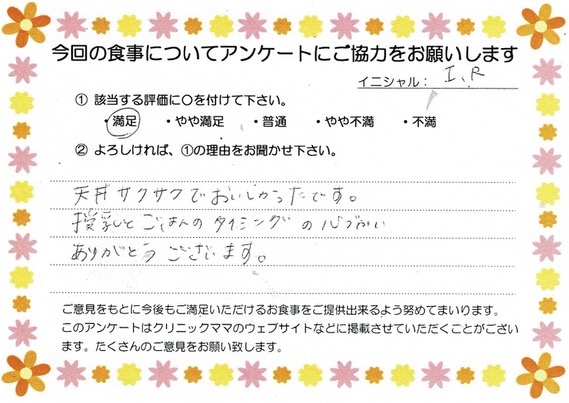 今回の食事についてアンケートにご協力をお願いします
イニシャル: I.R
① 該当する評価に〇を付けて下さい。
・満足 ・やや満足 ・普通 ・やや不満 ・不満
② よろしければ、①の理由をお聞かせ下さい。
天丼サクサクでおいしかったです。
授乳とごはんのタイミングの心づかい
ありがとうございます。
ご意見をもとに今後もご満足いただけるお食事をご提供出来るよう努めてまいります。
このアンケートはクリニックママのウェブサイトなどに掲載させていただくことがござい
ます。たくさんのご意見をお願い致します。